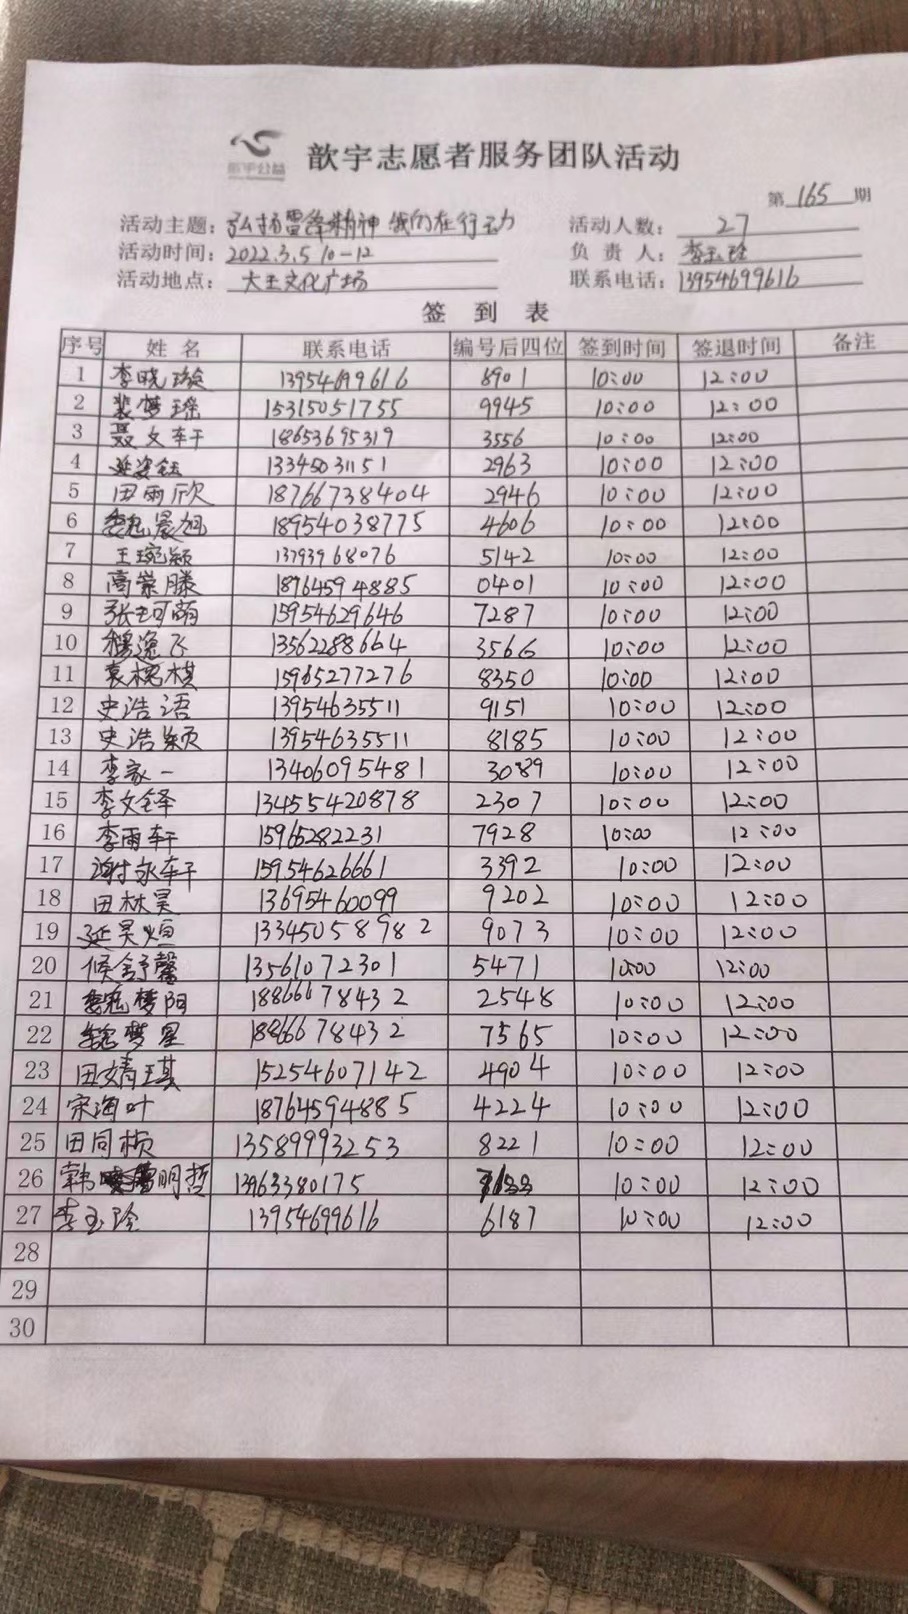 歆宇公益
歆宇志愿者服务团队活动
第 165 期
活动主题: 弘扬雷锋精神 我们在行动 活动人数: 27
活动时间: 2022.3.5 10-12 负 责 人: 李玉玲
活动地点: 大王文化广场 联系电话: 13954699616
签 到 表
序号 姓 名 联系电话 编号后四位 签到时间 签退时间 备注
1 李晓璇 13954699616 8901 10:00 12:00
2 裴梦瑶 15315051755 9945 10:00 12:00
3 聂文轩 18653695319 3556 10:00 12:00
4 延姿钰 13345031151 2963 10:00 12:00
5 田雨欣 18766738404 2946 10:00 12:00
6 魏晨旭 18954038775 4606 10:00 12:00
7 王琬颖 13793968076 5142 10:00 12:00
8 高崇滕 18764594885 0401 10:00 12:00
9 张珂萌 15954629646 7287 10:00 12:00
10 穆逸飞 13562288664 3566 10:00 12:00
11 袁槐棋 15965277276 8350 10:00 12:00
12 史浩语 13954635511 9151 10:00 12:00
13 史浩颖 13954635511 8185 10:00 12:00
14 李家一 13406095481 3089 10:00 12:00
15 李文铎 13455420878 2307 10:00 12:00
16 李雨轩 15965282231 7928 10:00 12:00
17 谢永轩 15954626661 3392 10:00 12:00
18 田林昊 13695460099 9202 10:00 12:00
19 延昊烜 13345058982 9073 10:00 12:00
20 候舒馨 13561072301 5471 10:00 12:00
21 魏梦阳 18866678432 2548 10:00 12:00
22 魏梦星 18866678432 7565 10:00 12:00
23 田婧琪 15254607142 4904 10:00 12:00
24 宋海叶 18764594885 4224 10:00 12:00
25 田同桢 13589993253 8221 10:00 12:00
26 韩明哲 13963380175 10:00 12:00
27 李玉玲 13954699616 6187 10:00 12:00
28
29
30